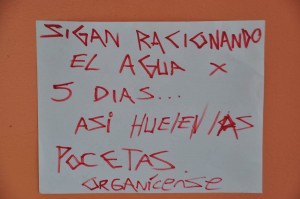 SIGAN RACIONANDO
EL AGUA X
5 DIAS...
ASI HUELEN LAS
POCETAS.
ORGANÍCENSE